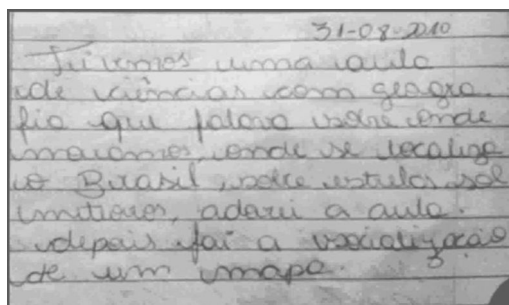 31-08-2010
Tivemos uma aula
de ciências com geogra
fia que falava sobre onde
moramos, onde se localiza
o Brasil, sobre estrelas, sol
adorei a aula.
depois foi a socialização
de um mapa.